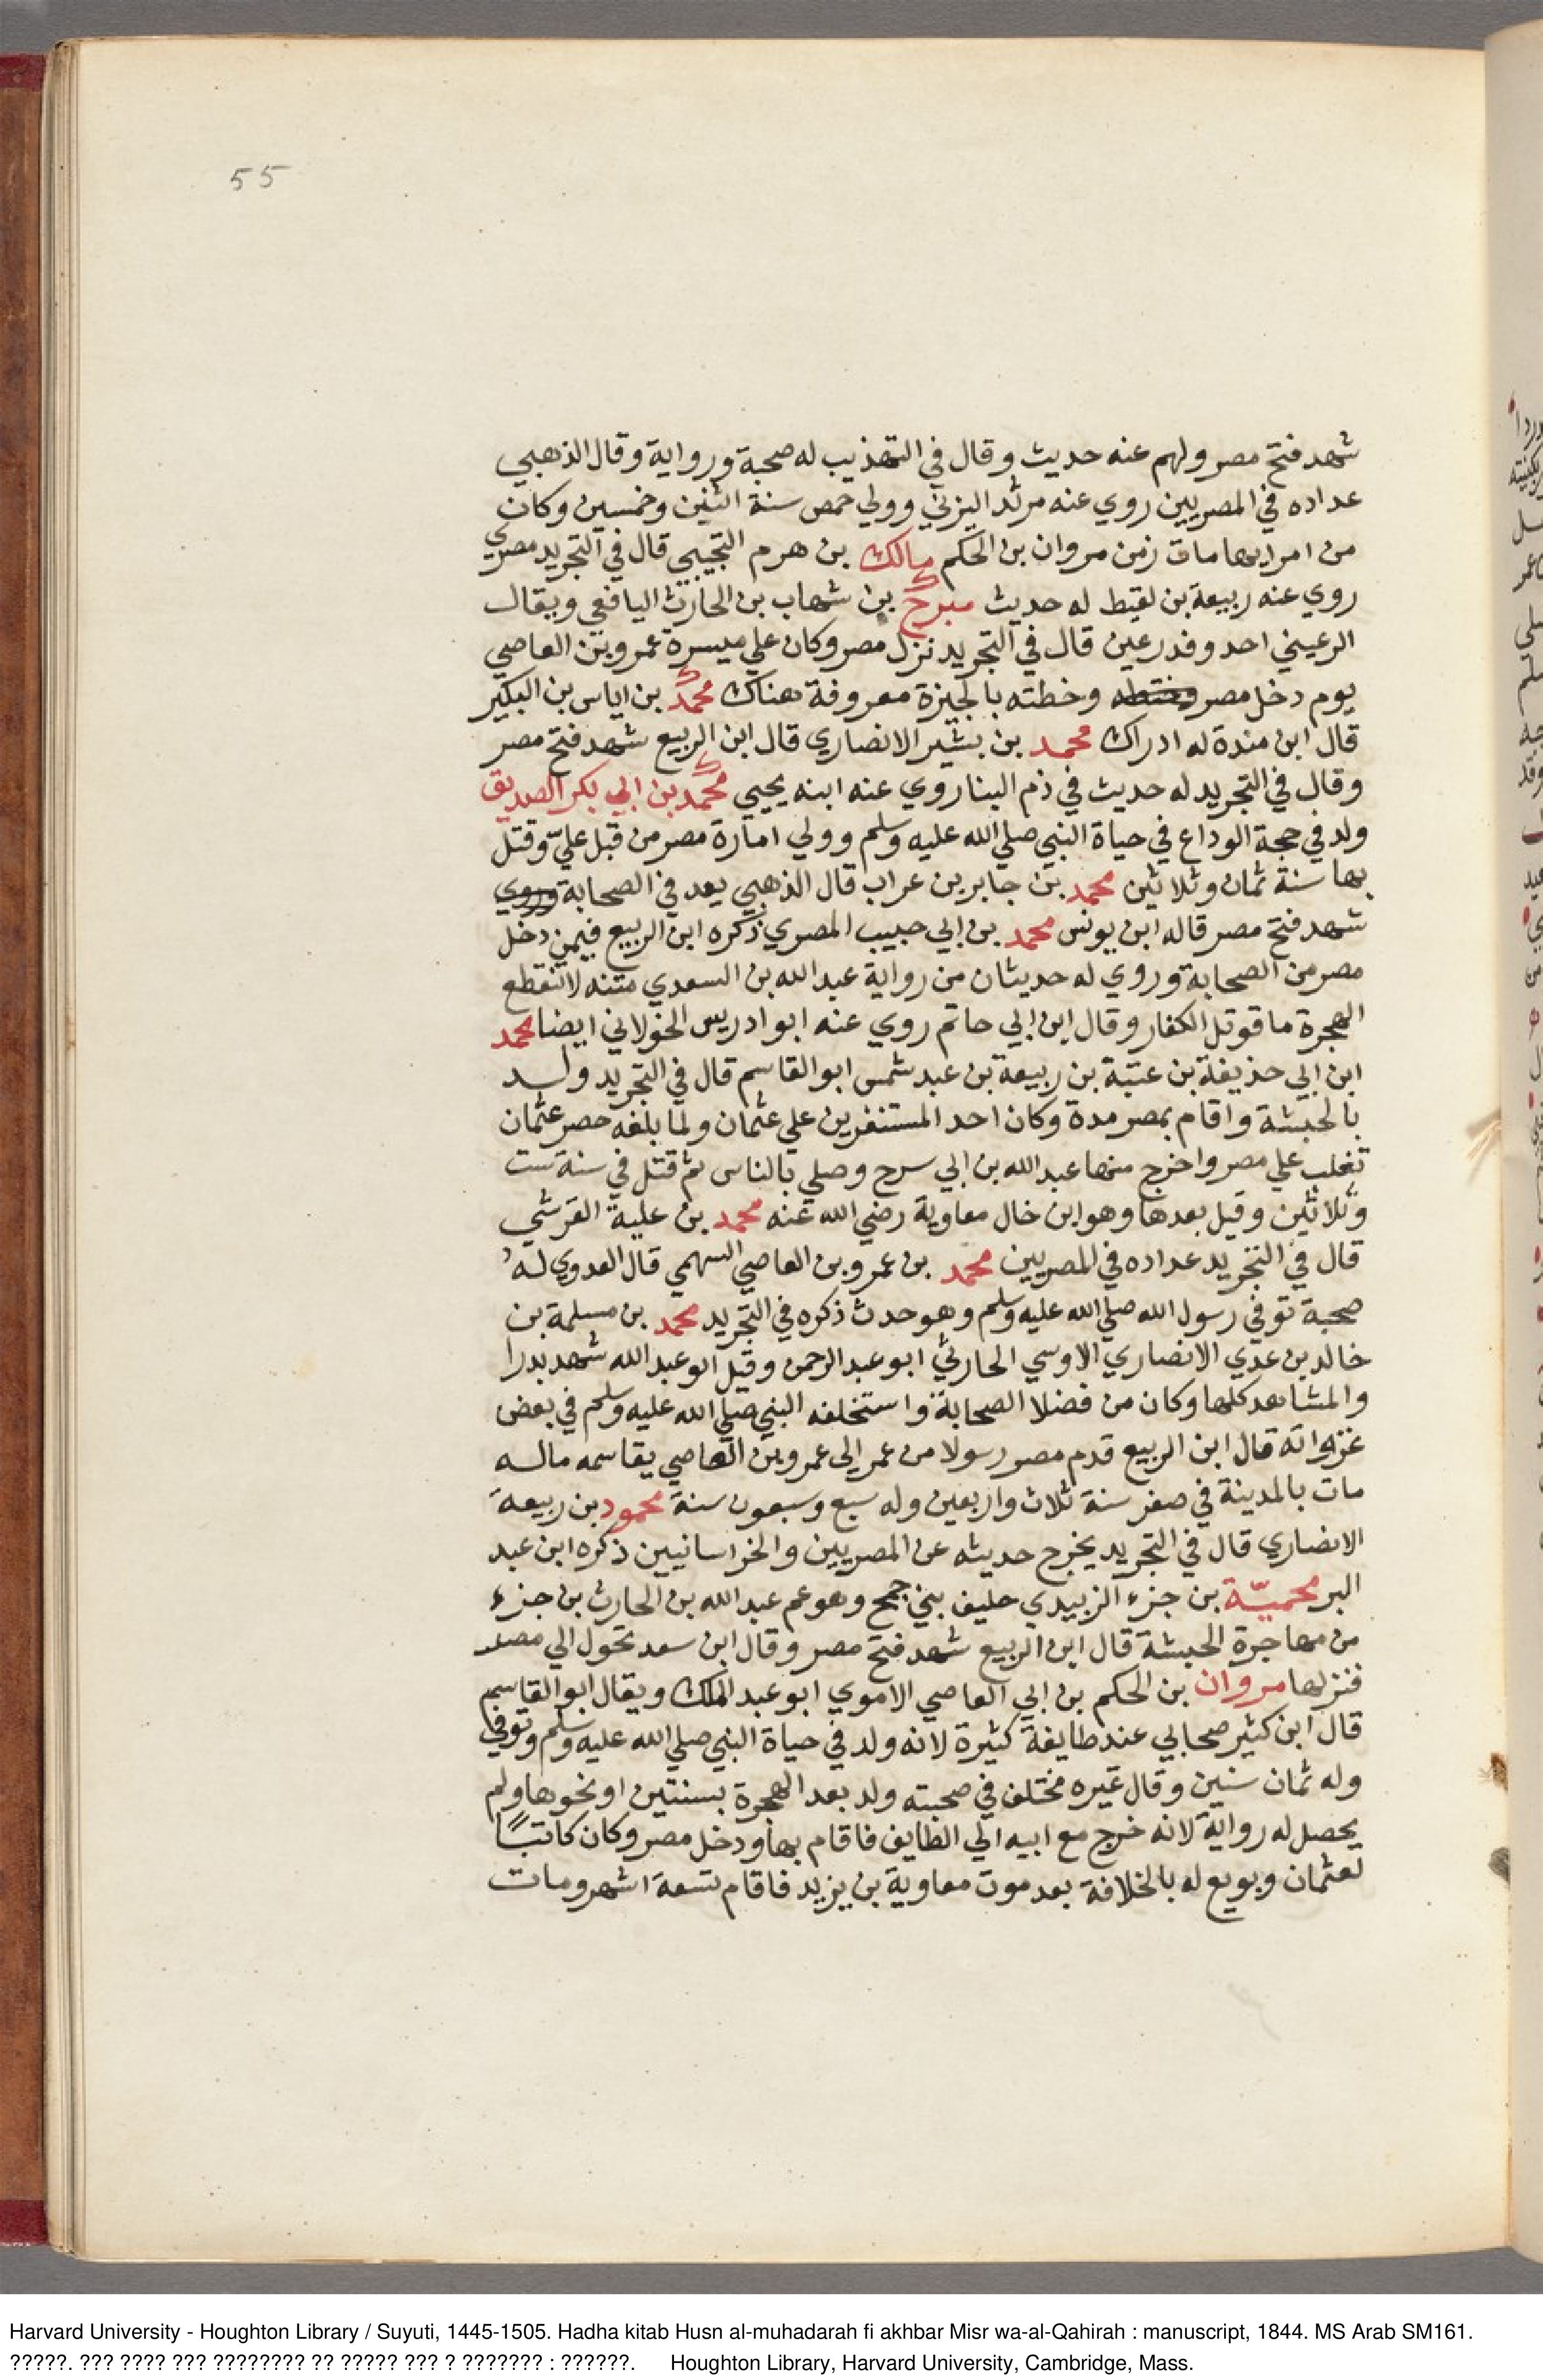 55
شهد فتح مصر ولهم عنه حديث وقال في التهذيب له صحبة ورواية وقال الذهبي
عداده في المصريين روي عنه مرثد اليزني وولي حمص سنة اثنين وخمسين وكان
من امرايها مات زمن مروان بن الحكم مالك بن هرم التجيبي قال في التجريد مصري
روي عنه ربيعة بن لقيط له حديث مبرح بن شهاب بن الحارث اليافعي ويقال
الرعيني احد وفد رعين قال في التجريد نزل مصر وكان علي ميسرة عمرو بن العاصي
يوم دخل مصر وخطته بالجيزة معروفة هناك محمد بن اياس بن البكير
قال ابن مندة له ادراك محمد بن بشير الانصاري قال ابن الربيع شهد فتح مصر
وقال في التجريد له حديث في ذم البنا روي عنه ابنه يحيي محمد بن ابي بكر الصديق
ولد في حجة الوداع في حياة النبي صلي الله عليه وسلم وولي امارة مصر من قبل علي وقتل
بها سنة ثمان وثلاثين محمد بن جابر بن عراب قال الذهبي يعد في الصحابة وروي
شهد فتح مصر قاله ابن يونس محمد بن ابي حبيب المصري ذكره ابن الربيع فيمن دخل
مصر من الصحابة وروي له حديثان من رواية عبد الله بن السعدي متنه لا تنقطع
الهجرة ما قوتل الكفار وقال ابن ابي حاتم روي عنه ابو ادريس الخولاني ايضا محمد
ابن ابي حذيفة بن عتبة بن ربيعة بن عبد شمس ابو القاسم قال في التجريد ولد
بالحبشة واقام بمصر مدة وكان احد المستنفرين علي عثمان ولما بلغه حصر عثمان
تغلب علي مصر واخرج منها عبد الله بن ابي سرح وصلي بالناس ثم قتل في سنة ست
وثلاثين وقيل بعدها وهو ابن خال معاوية رضي الله عنه محمد بن علبة القرشي
قال في التجريد عداده في المصريين محمد بن عمرو بن العاصي السهمي قال العدوي له
صحبة توفي رسول الله صلي الله عليه وسلم وهو حدث ذكره في التجريد محمد بن مسلمة بن
خالد بن عدي الانصاري الاوسي الحارثي ابو عبد الرحمن وقيل ابو عبد الله شهد بدرا
والمشاهد كلها وكان من فضلا الصحابة واستخلفه النبي صلي الله عليه وسلم في بعض
غزواته قال ابن الربيع قدم مصر رسولا من عمر الي عمرو بن العاصي يقاسمه ماله
مات بالمدينة في صفر سنة ثلاث واربعين وله سبع وسبعون سنة محمود بن ربيعة
الانصاري قال في التجريد يخرج حديثه عن المصريين والخراسانيين ذكره ابن عبد
البر محمية بن جزء الزبيدي حليف بني جمح وهو عم عبد الله بن الحارث بن جزء
من مهاجرة الحبشة قال ابن الربيع شهد فتح مصر وقال ابن سعد تحول الي مصر
فنزلها مروان بن الحكم بن ابي العاصي الاموي ابو عبد الملك ويقال ابو القاسم
قال ابن كثير صحابي عند طايفة كثيرة لانه ولد في حياة النبي صلي الله عليه وسلم وتوفي
وله ثمان سنين وقال غيره مختلف في صحبته ولد بعد الهجرة بسنتين او نحوها ولم
يحصل له رواية لانه خرج مع ابيه الي الطايف فاقام بها ودخل مصر وكان كاتبًا
لعثمان وبويع له بالخلافة بعد موت معاوية بن يزيد فاقام تسعة اشهر ومات
Harvard University - Houghton Library / Suyuti, 1445-1505. Hadha kitab Husn al-muhadarah fi akhbar Misr wa-al-Qahirah : manuscript, 1844. MS Arab SM161.
?????. ??? ???? ??? ???????? ?? ????? ??? ? ??????? : ??????. Houghton Library, Harvard University, Cambridge, Mass.